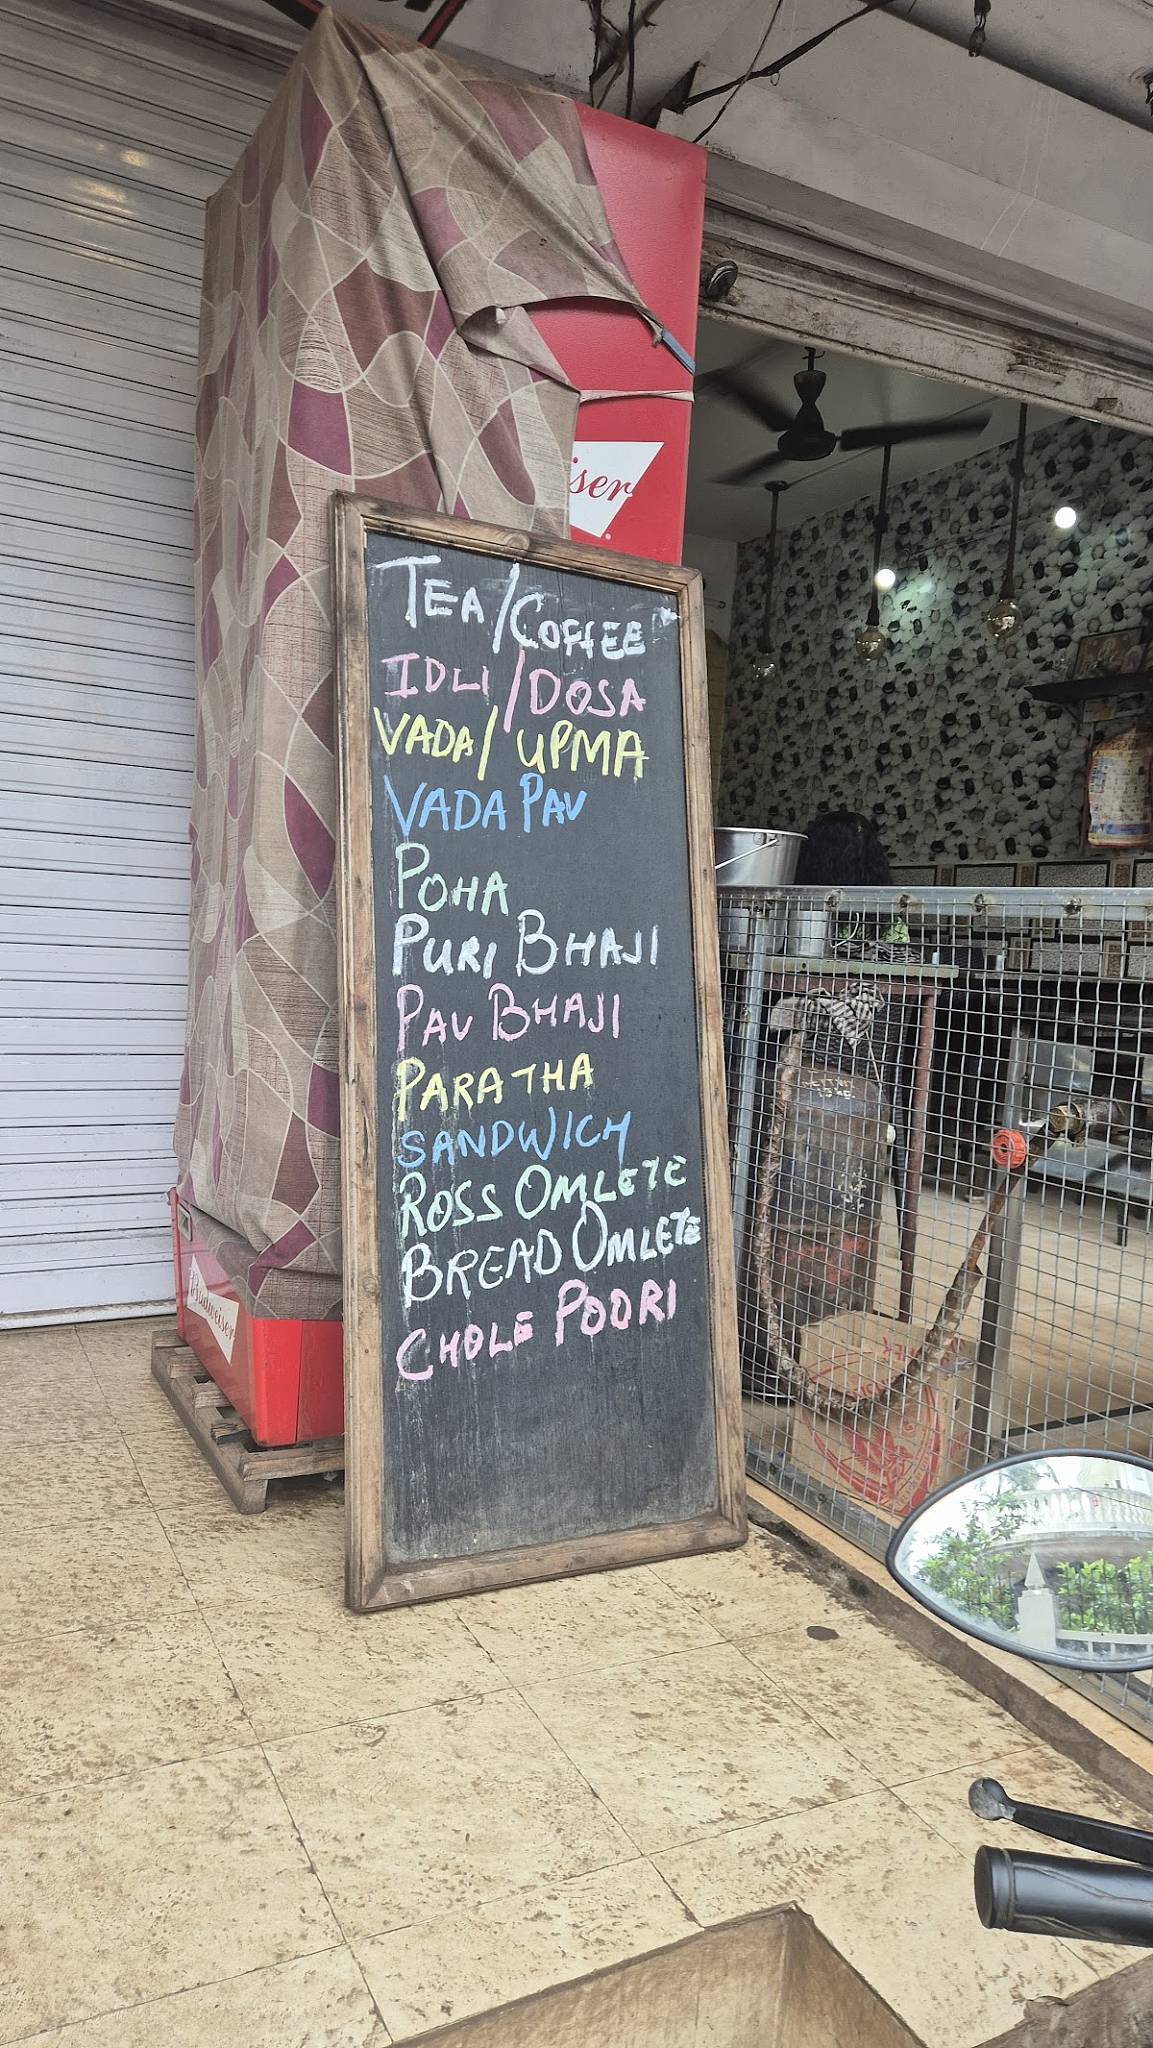 iser
TEA/COFFEE
IDLI/DOSA
VADA/UPMA
VADA PAV
POHA
PURI BHAJI
PAV BHAJI
PARATHA
SANDWICH
ROSS OMLETE
BREAD OMLETE
CHOLE POORI
Budweiser